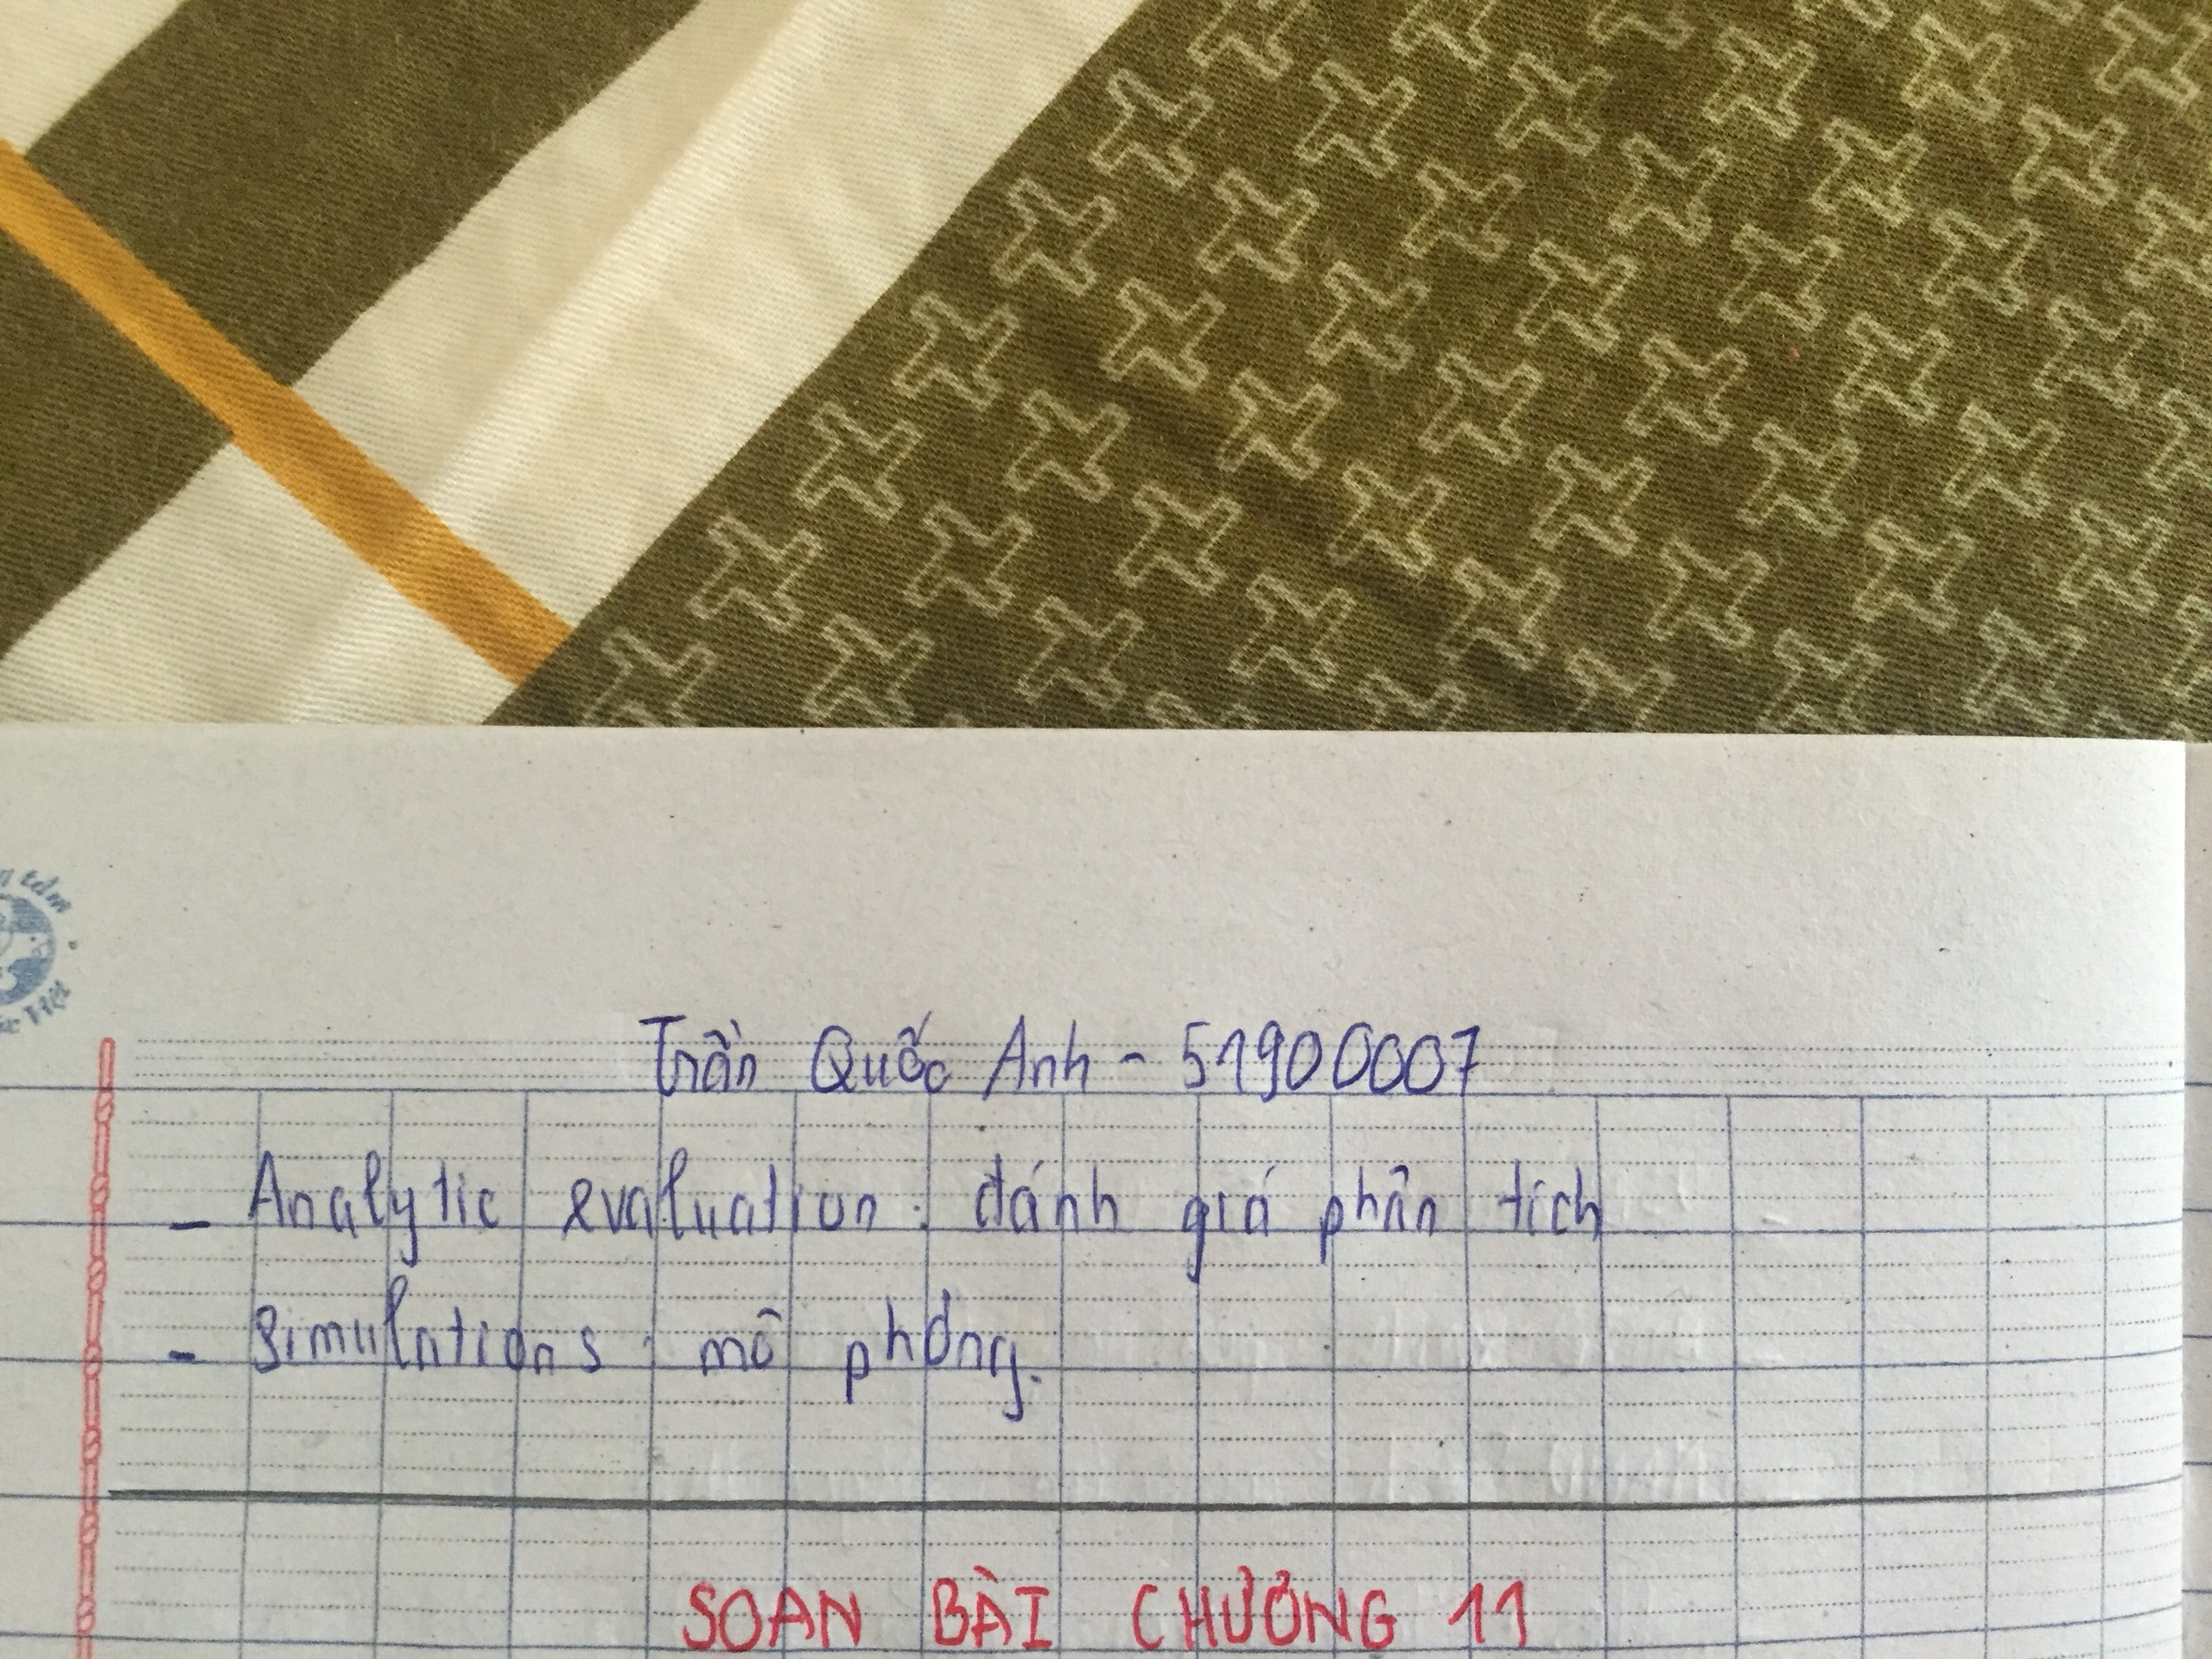 Trần Quốc Anh - 51900007
- Analytic evaluation : đánh giá phân tích
- Simulations : mô phỏng.
SOẠN BÀI CHƯƠNG 11